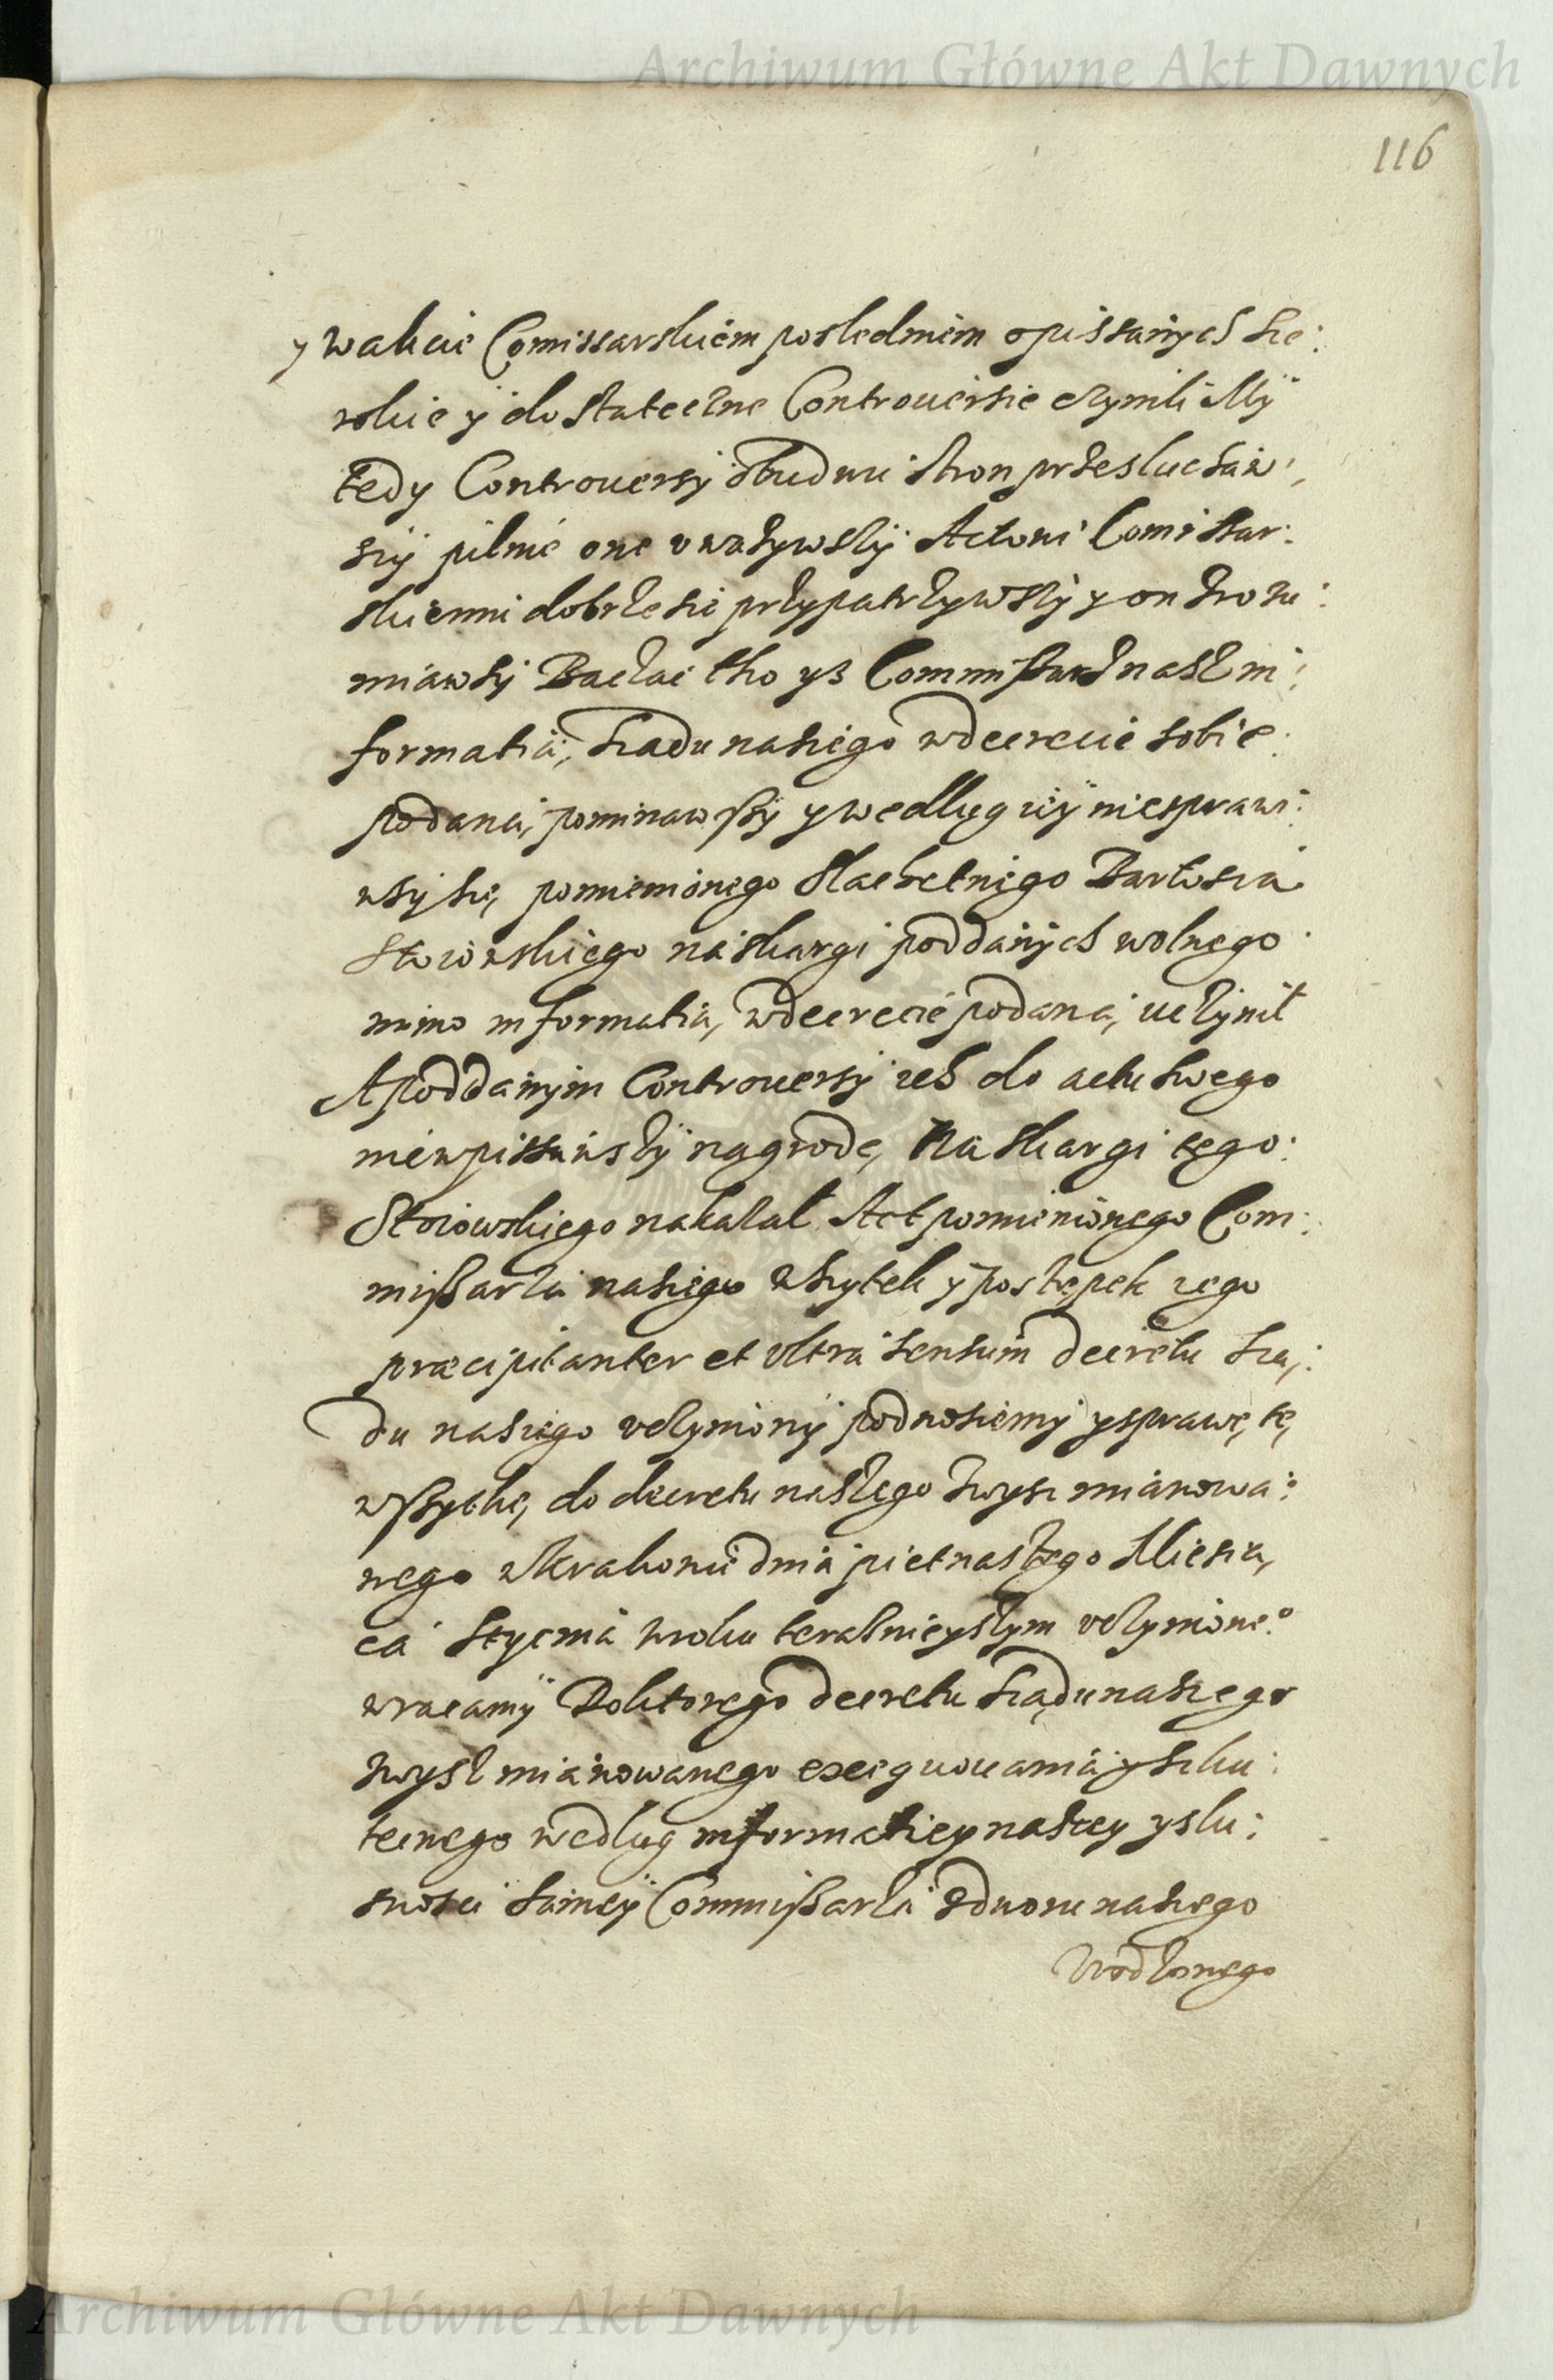 Archiwum Główne Akt Dawnych
116
y w akcie Comissarskiem posledniem opissanych sze:
rokie y dostateczne Controuersie czynili My
tedy Controuersy obudwu stron przesluchaw:
szy pilnie one vwazywszy Actowi Comissar:
skiemu dobrze sie przypatrzywszy y on zrozu:
miawszy Bacząc tho ysz Commissarz nasz in:
formatią, Sądu naszego w decrecie sobie
podaną, pominąwszy y wedlug iey niesprawi:
wszy się, pomienionego Slachetnego Bartosza
Stoiowskiego na skargi poddanych wolnego
mimo informatią, w decrecie podaną, uczynil
A poddanym Controuersy ich do actu swego
niewpissawszy nagrodę, Na skargi tego
Stoiowskiego nakazal Act pomienionego Com:
missarza naszego wszytek y postępek iego
præcipitanter et vltra sensum decretu Są:
du naszego vczyniony podnosiemy y sprawę, tę,
wszytkę, do decretu naszego zwysz mianowa:
nego w Krakowie dnia pietnastego Miesią,
ca Stycznia w roku teraznieyszym vczynione°
wracamy Do ktorego decretu Sądu naszego
zwysz mianowanego exequowania y sku:
tecznego wedlug informatiey naszey y slu:
sznosci samey Commissarza z dworu naszego
Vrodzonego
Archiwum Główne Akt Dawnych